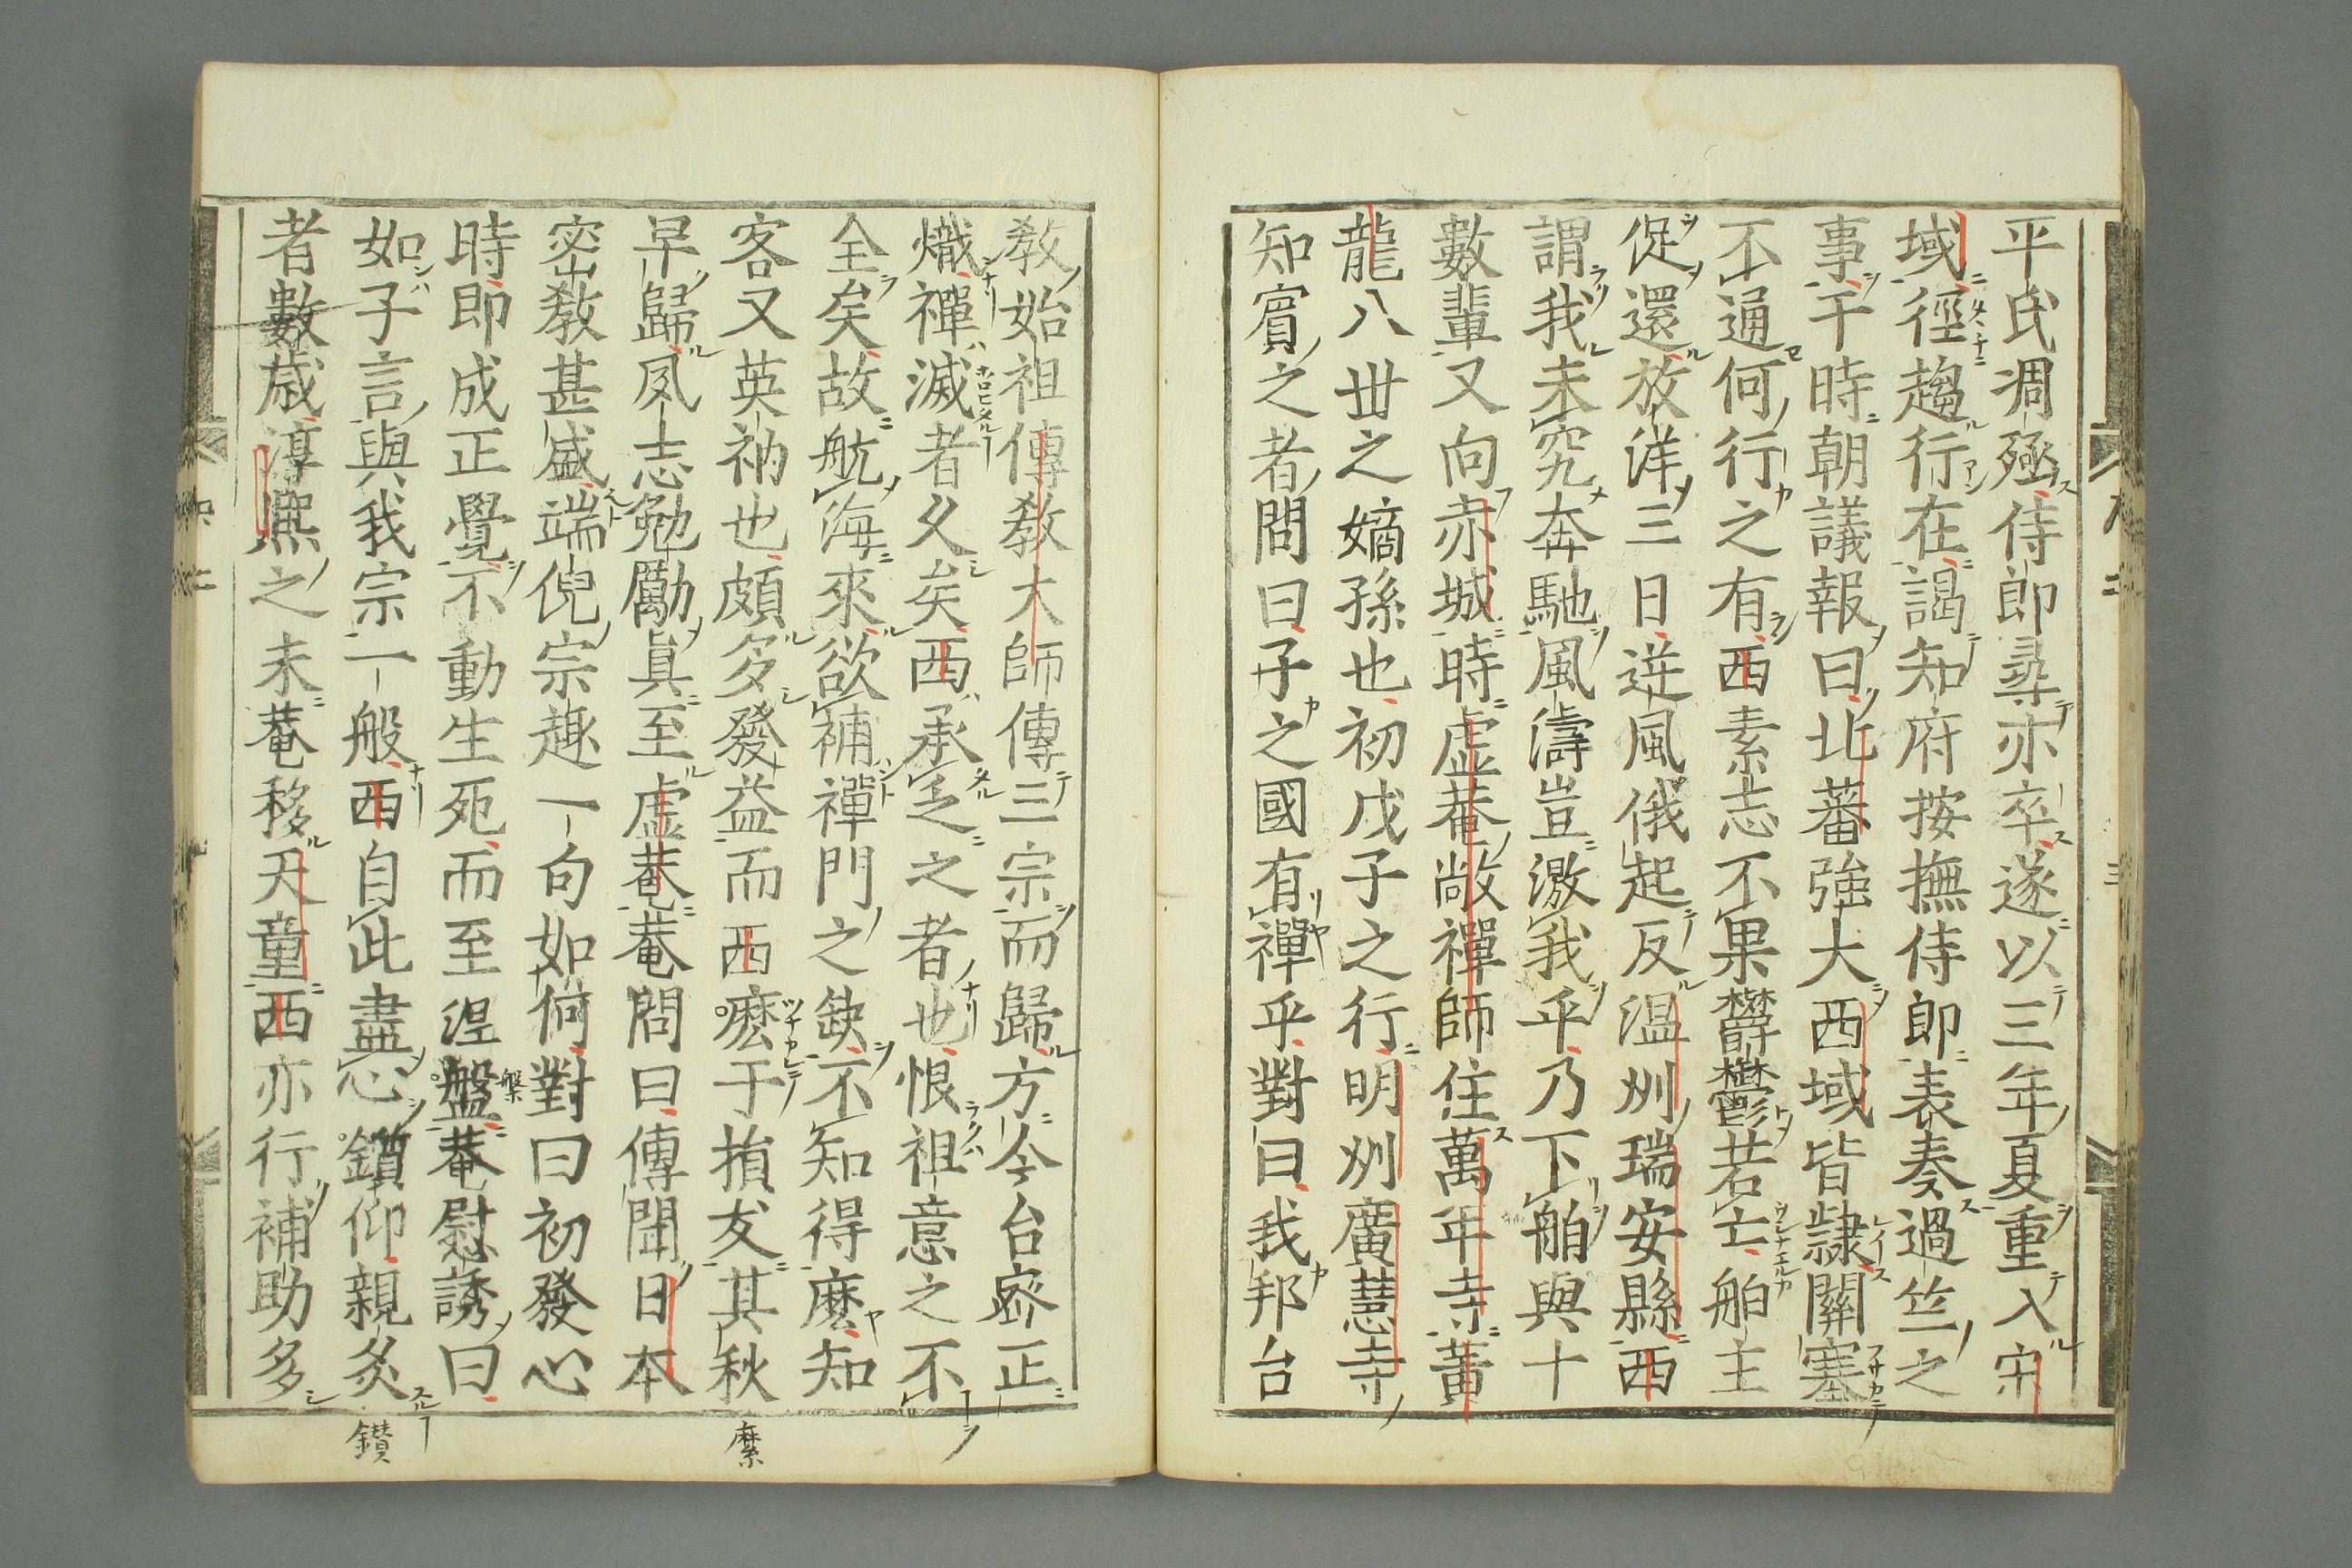 平氏凋殛侍郎尋亦卒遂以三年夏重入宋
域徑趨行在謁知府按撫侍郎表奏過竺之
事于時朝議報曰北蕃強大西域皆隷關塞
不通何行之有西素志不果欝鬱若亡舶主
促還放洋三日逆風俄起反温州瑞安縣西
謂我未究奔馳風濤豈激我乎乃下舶與十
數輩又向赤城時虚菴敞禪師住萬年寺黃
龍八世之嫡孫也初戊子之行明州廣慧寺
知賓之者問曰子之國有禪乎對曰我邦台
教始祖傳教大師傳三宗而歸方今台密正
熾禪滅者久矣西承乏之者也恨祖意之不
全矣故航海來欲補禪門之缺不知得麽知
客又英衲也頗多發益而西嚒于損友其秋
早歸夙志勉勵眞至虚菴菴問曰傳聞日本
密教甚盛端倪宗趣一句如何對曰初發心
時即成正覺不動生死而至涅盤菴慰誘曰
如子言與我宗一般西自此盡心鑽仰親炙
者數歲淳熙之末菴移天童西亦行補助多
槃
縻
鑚